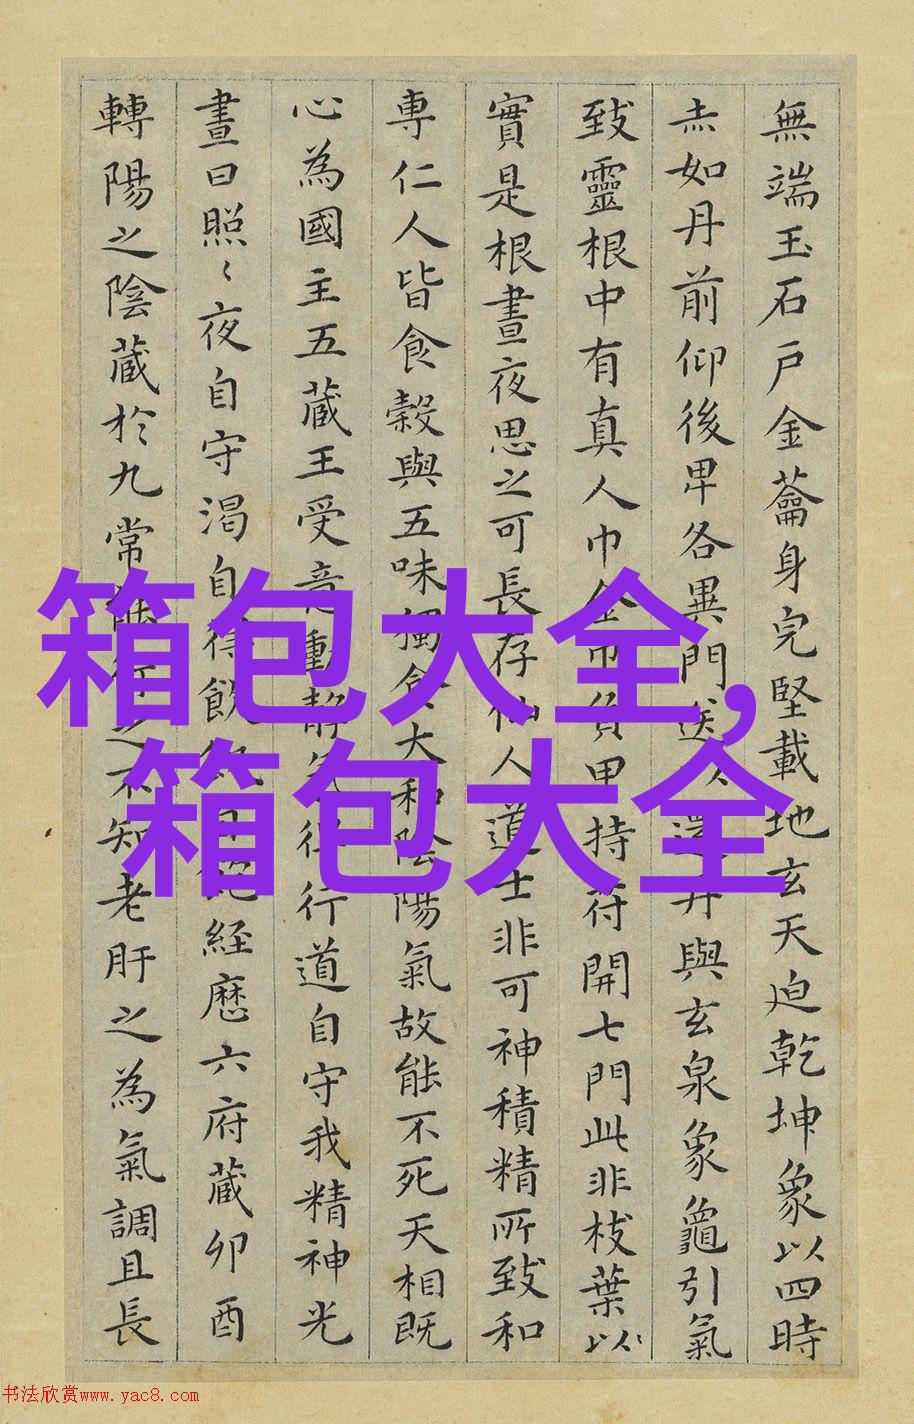 無端玉石戶金蘥身完堅載地玄天迫乾坤象以四時
赤如丹前仰後卑各異門送以還丹與玄泉象龜引氣
致靈根中有真人巾金巾負甲持符開七門此非枝葉以
實是根晝夜思之可長存仙人道士非可神積精所致和
專仁人皆食穀與五味獨食大和陰陽氣故能不死天相既
心為國主五蔵王受意動靜氣得行道自守我精神光
晝日照〻夜自守渴自得飲飢自飽経歷六府蔵卯酉
轉陽之陰蔵於九常能行之不知老肝之為氣調且長
箱包大全,
箱包大全
书法欣赏www.yac8.com